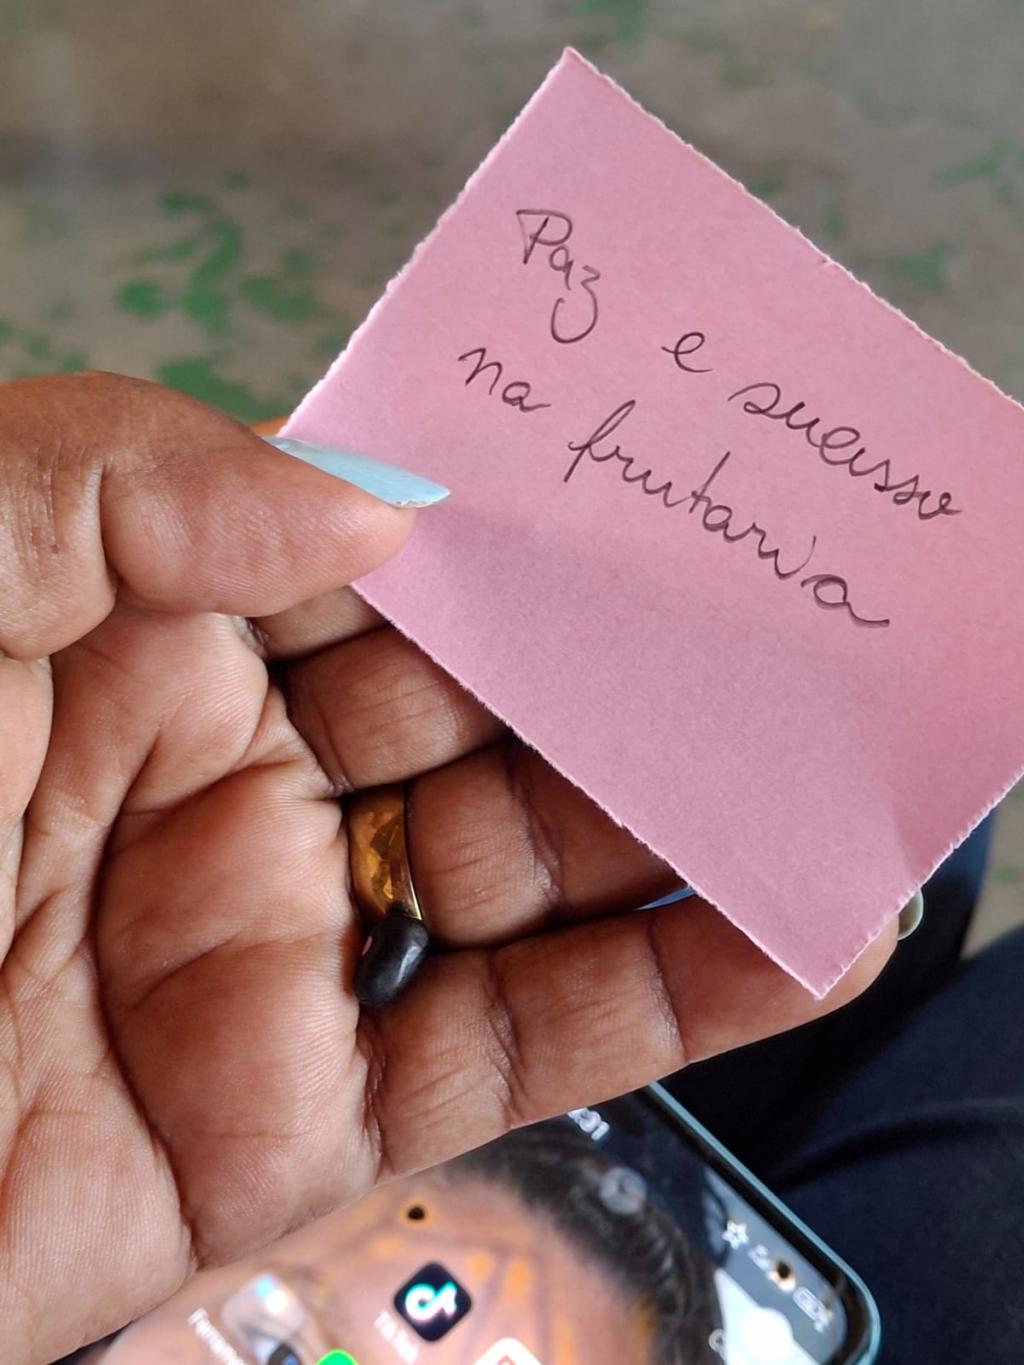 Paz e sucesso
na frutaria
TikTok